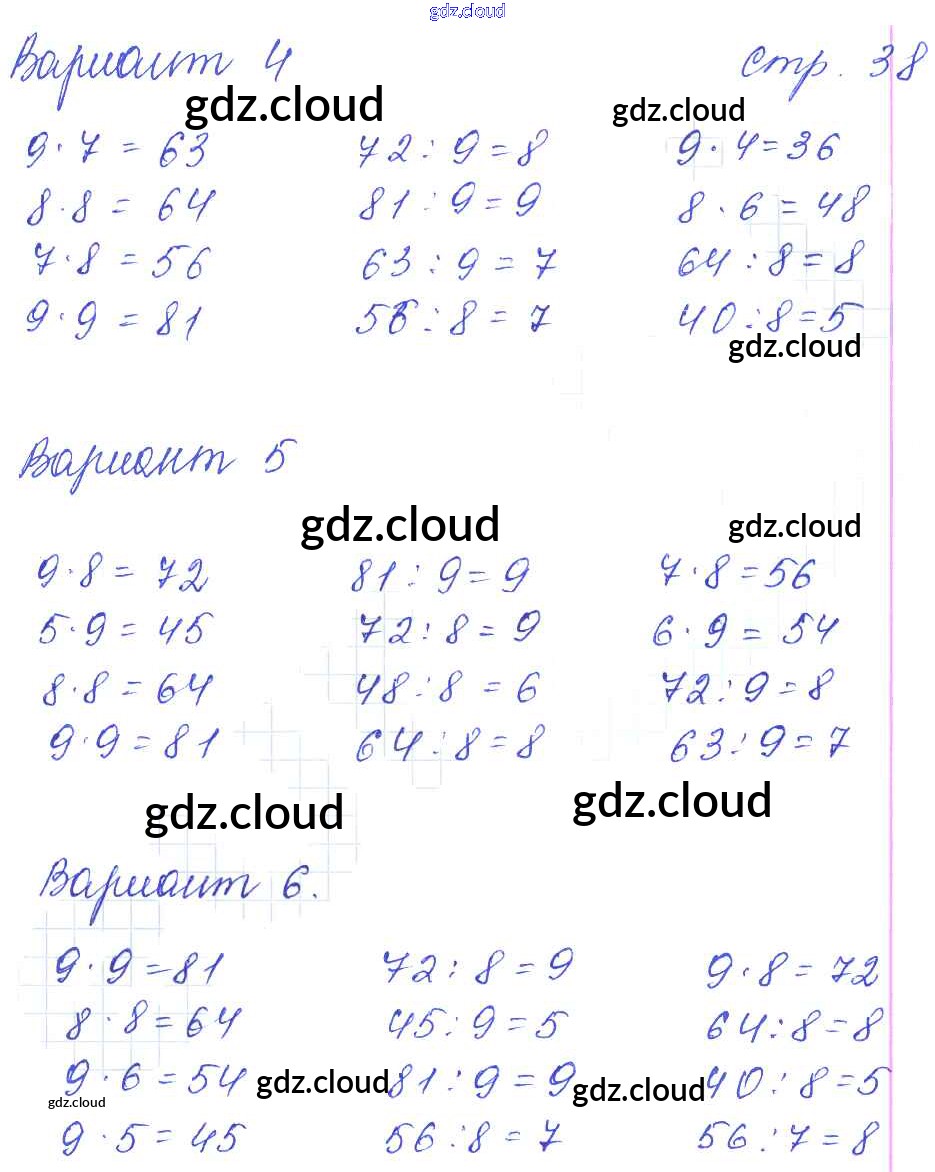 gdz.cloud
Вариант 4 стр. 38
gdz.cloud gdz.cloud
9·7=63 72:9=8 9·4=36
8·8=64 81:9=9 8·6=48
7·8=56 63:9=7 64:8=8
9·9=81 56:8=7 40:8=5
gdz.cloud
Вариант 5
gdz.cloud gdz.cloud
9·8=72 81:9=9 7·8=56
5·9=45 72:8=9 6·9=54
8·8=64 48:8=6 72:9=8
9·9=81 64:8=8 63:9=7
gdz.cloud gdz.cloud
Вариант 6.
9·9=81 72:8=9 9·8=72
8·8=64 45:9=5 64:8=8
9·6=54 gdz.cloud 81:9=9 gdz.cloud 40:8=5
gdz.cloud
9·5=45 56:8=7 56:7=8